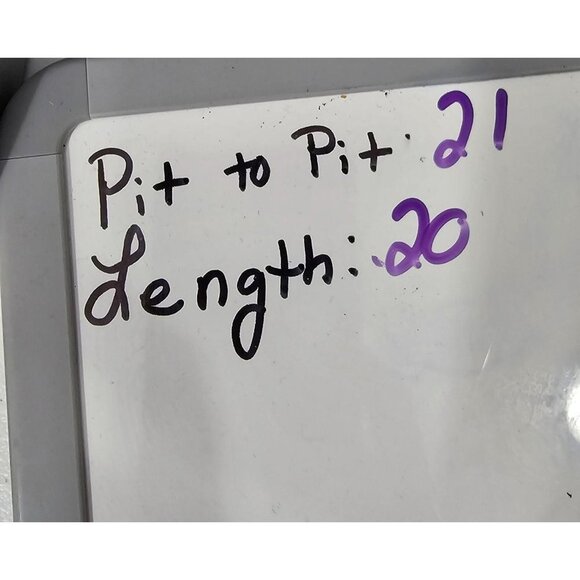 Pit to Pit: 21
Length: 20